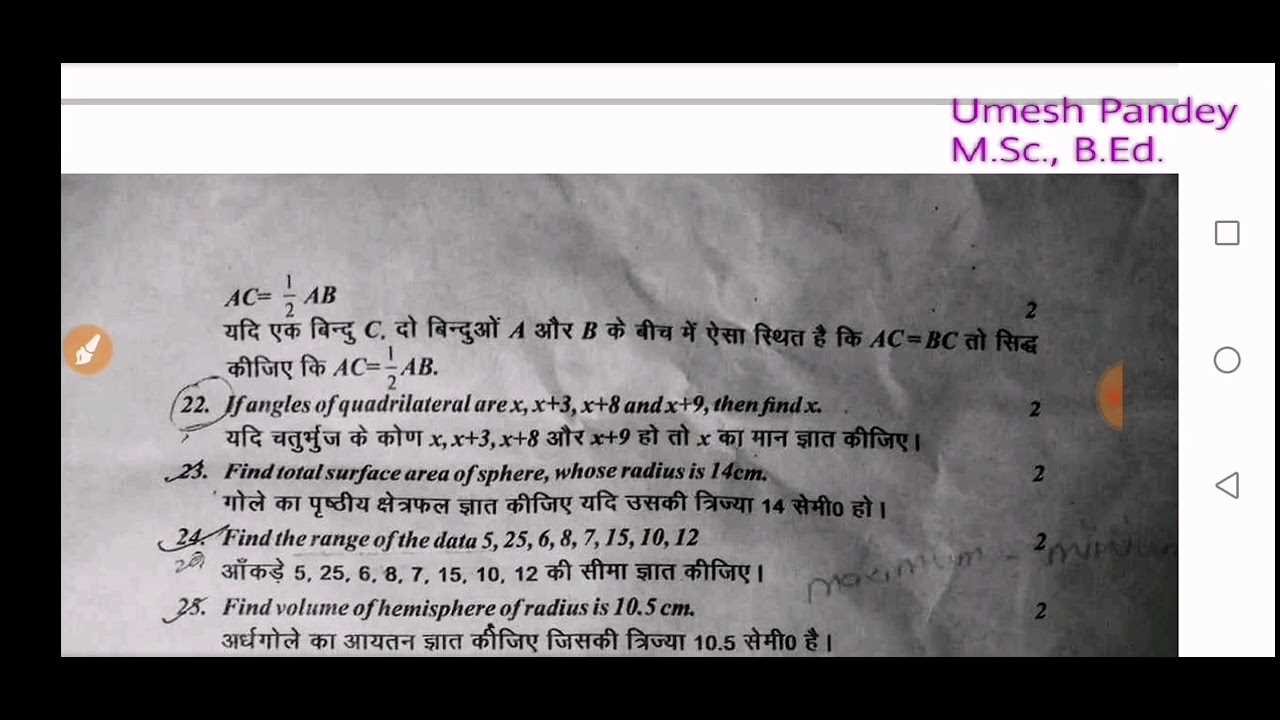 Umesh Pandey
M.Sc., B.Ed.
AC= 1/2 AB 2
यदि एक बिन्दु C, दो बिन्दुओं A और B के बीच में ऐसा स्थित है कि AC=BC तो सिद्ध
कीजिए कि AC=1/2 AB.
22. If angles of quadrilateral are x, x+3, x+8 and x+9, then find x. 2
यदि चतुर्भुज के कोण x, x+3, x+8 और x+9 हो तो x का मान ज्ञात कीजिए।
23. Find total surface area of sphere, whose radius is 14cm. 2
गोले का पृष्ठीय क्षेत्रफल ज्ञात कीजिए यदि उसकी त्रिज्या 14 सेमी0 हो।
24. Find the range of the data 5, 25, 6, 8, 7, 15, 10, 12 2
maximum - minimum
आँकड़े 5, 25, 6, 8, 7, 15, 10, 12 की सीमा ज्ञात कीजिए।
25. Find volume of hemisphere of radius is 10.5 cm. 2
अर्धगोले का आयतन ज्ञात कीजिए जिसकी त्रिज्या 10.5 सेमी0 है।